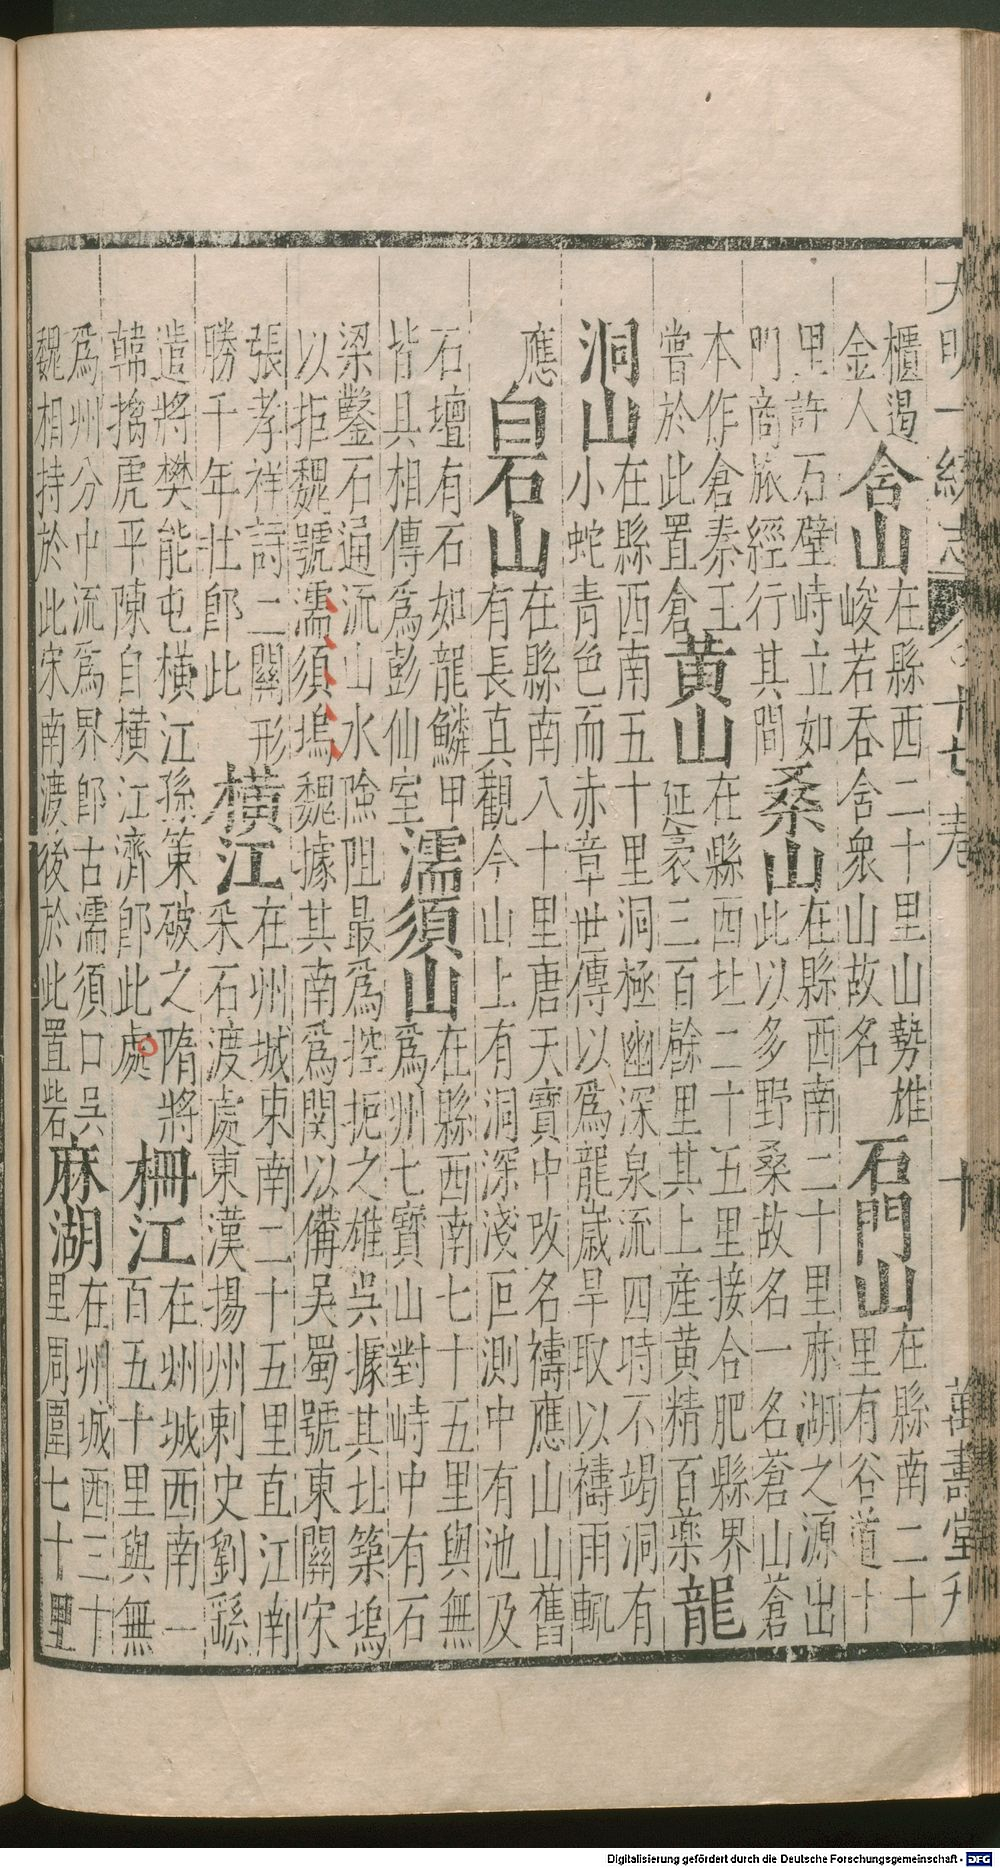 大明一統志 卷十七 十 萬壽堂刋
櫃遏
金人
含山
在縣西二十里山勢雄
峻若吞含衆山故名
石門山
在縣南二十
里有谷道十
里許石壁峙立如
門商旅經行其間
桑山
在縣西南二十里麻湖之源出
此以多野桑故名一名蒼山蒼
本作倉秦王
嘗於此置倉
黄山
在縣西北二十五里接合肥縣界
延袤三百餘里其上産黄精百藥
龍
洞山
在縣西南五十里洞極幽深泉流四時不竭洞有
小蛇青色而赤章世傳以爲龍歲旱取以禱雨輒
應
白石山
在縣南八十里唐天寶中攺名禱應山山舊
有長真觀今山上有洞深淺叵測中有池及
石壇有石如龍鱗甲
皆具相傳爲彭仙室
濡須山
在縣西南七十五里與無
爲州七寶山對峙中有石
梁鑿石通流山水險阻最爲控扼之雄吳據其北築塢
以拒魏號濡須塢魏據其南爲関以備吳蜀號東關宋
張孝祥詩二關形
勝千年壯卽此
橫江
在州城東南二十五里直江南
采石渡處東漢揚州刺史劉繇
遣將樊能屯橫江孫策破之隋將
韓擒虎平陳自橫江濟卽此處
柵江
在州城西南一
百五十里與無
爲州分中流爲界卽古濡須口吳
魏相持於此宋南渡後於此置砦
麻湖
在州城西三十
里周圍七十里
Digitalisierung gefördert durch die Deutsche Forschungsgemeinschaft - DFG